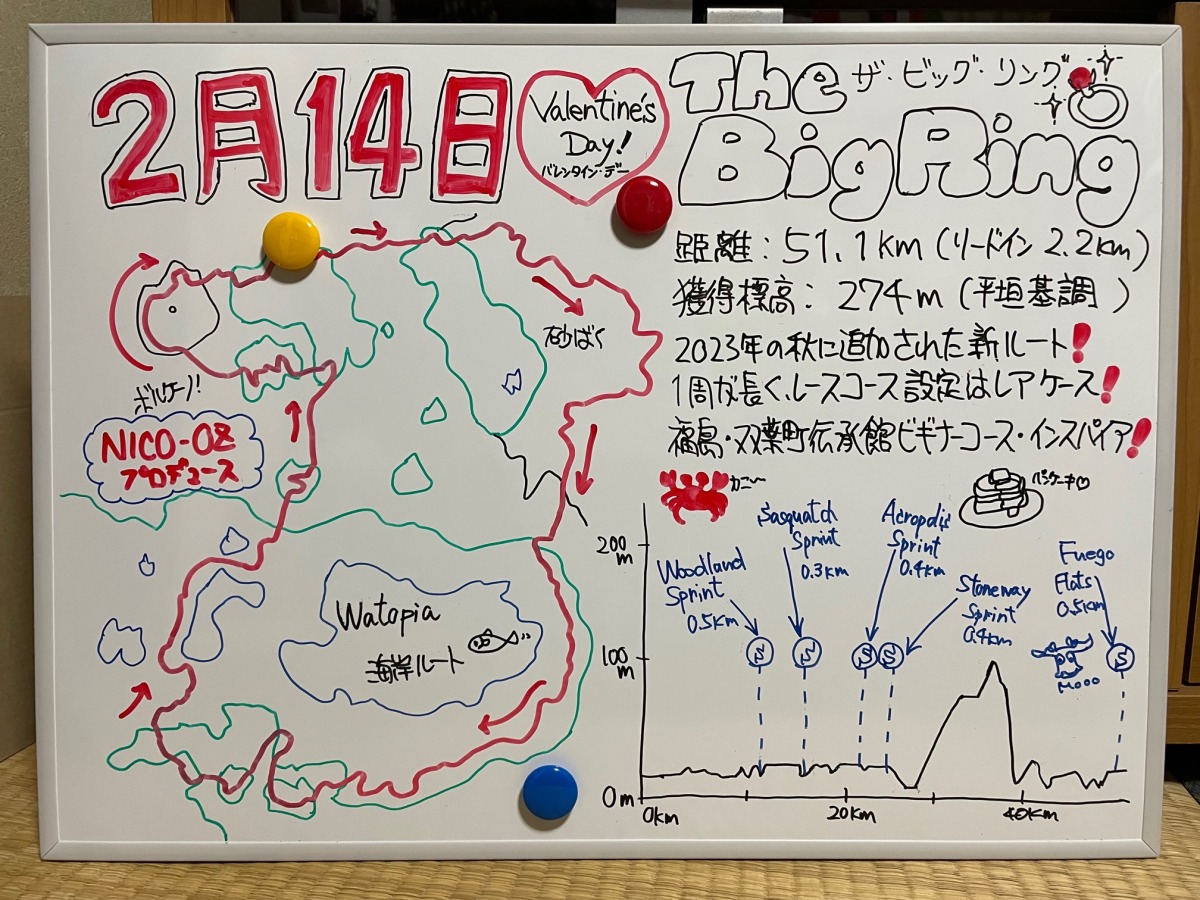 2月14日
Valentine's
Day!
バレンタイン・デー
The
ザ・ビッグ・リング
Big Ring
距離：51.1km（リードイン 2.2km）
獲得標高：274m（平坦基調）
2023年の秋に追加された新ルート！
1周が長く、レースコース設定はレアケース！
福島・双葉町伝承館ビギナーコース・インスパイア！
砂ばく
ボルケーノ！
NICO-OZ
プロデュース
Watopia
海岸ルート
カニ〜
パンケーキ♡
Woodland
Sprint
0.5km
Sasquatch
Sprint
0.3km
Acropolis
Sprint
0.4km
Stoneway
Sprint
0.4km
Fuego
Flats
0.5km
Mooo
S
S
S
S
S
200
m
100
m
0m
0km
20km
40km